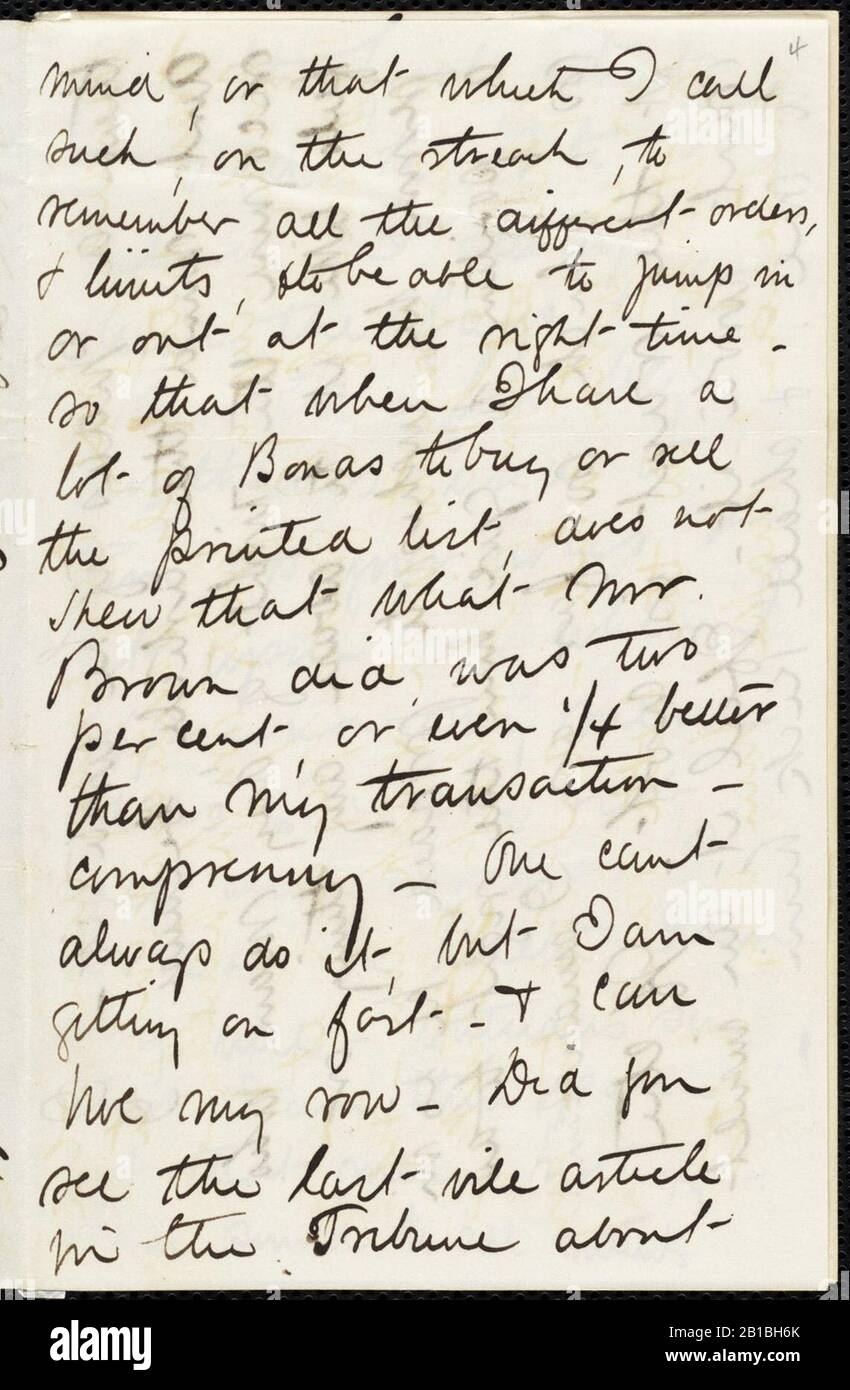 4
mind, or that which I call
such, on the streach, to
remember all the different orders,
& limits, & to be able to jump in
or out at the right time -
so that when I have a
lot of Bonds to buy or sell
the printed list, does not
shew that what Mr.
Brown did, was two
per cent, or even 1/4 better
than my transaction -
comprenny - One can't
always do it, but I am
getting on fast - & can
hoe my row - Did you
see the last vile article
in the Tribune about
alamy
Image ID: 2B1BH6K
www.alamy.com